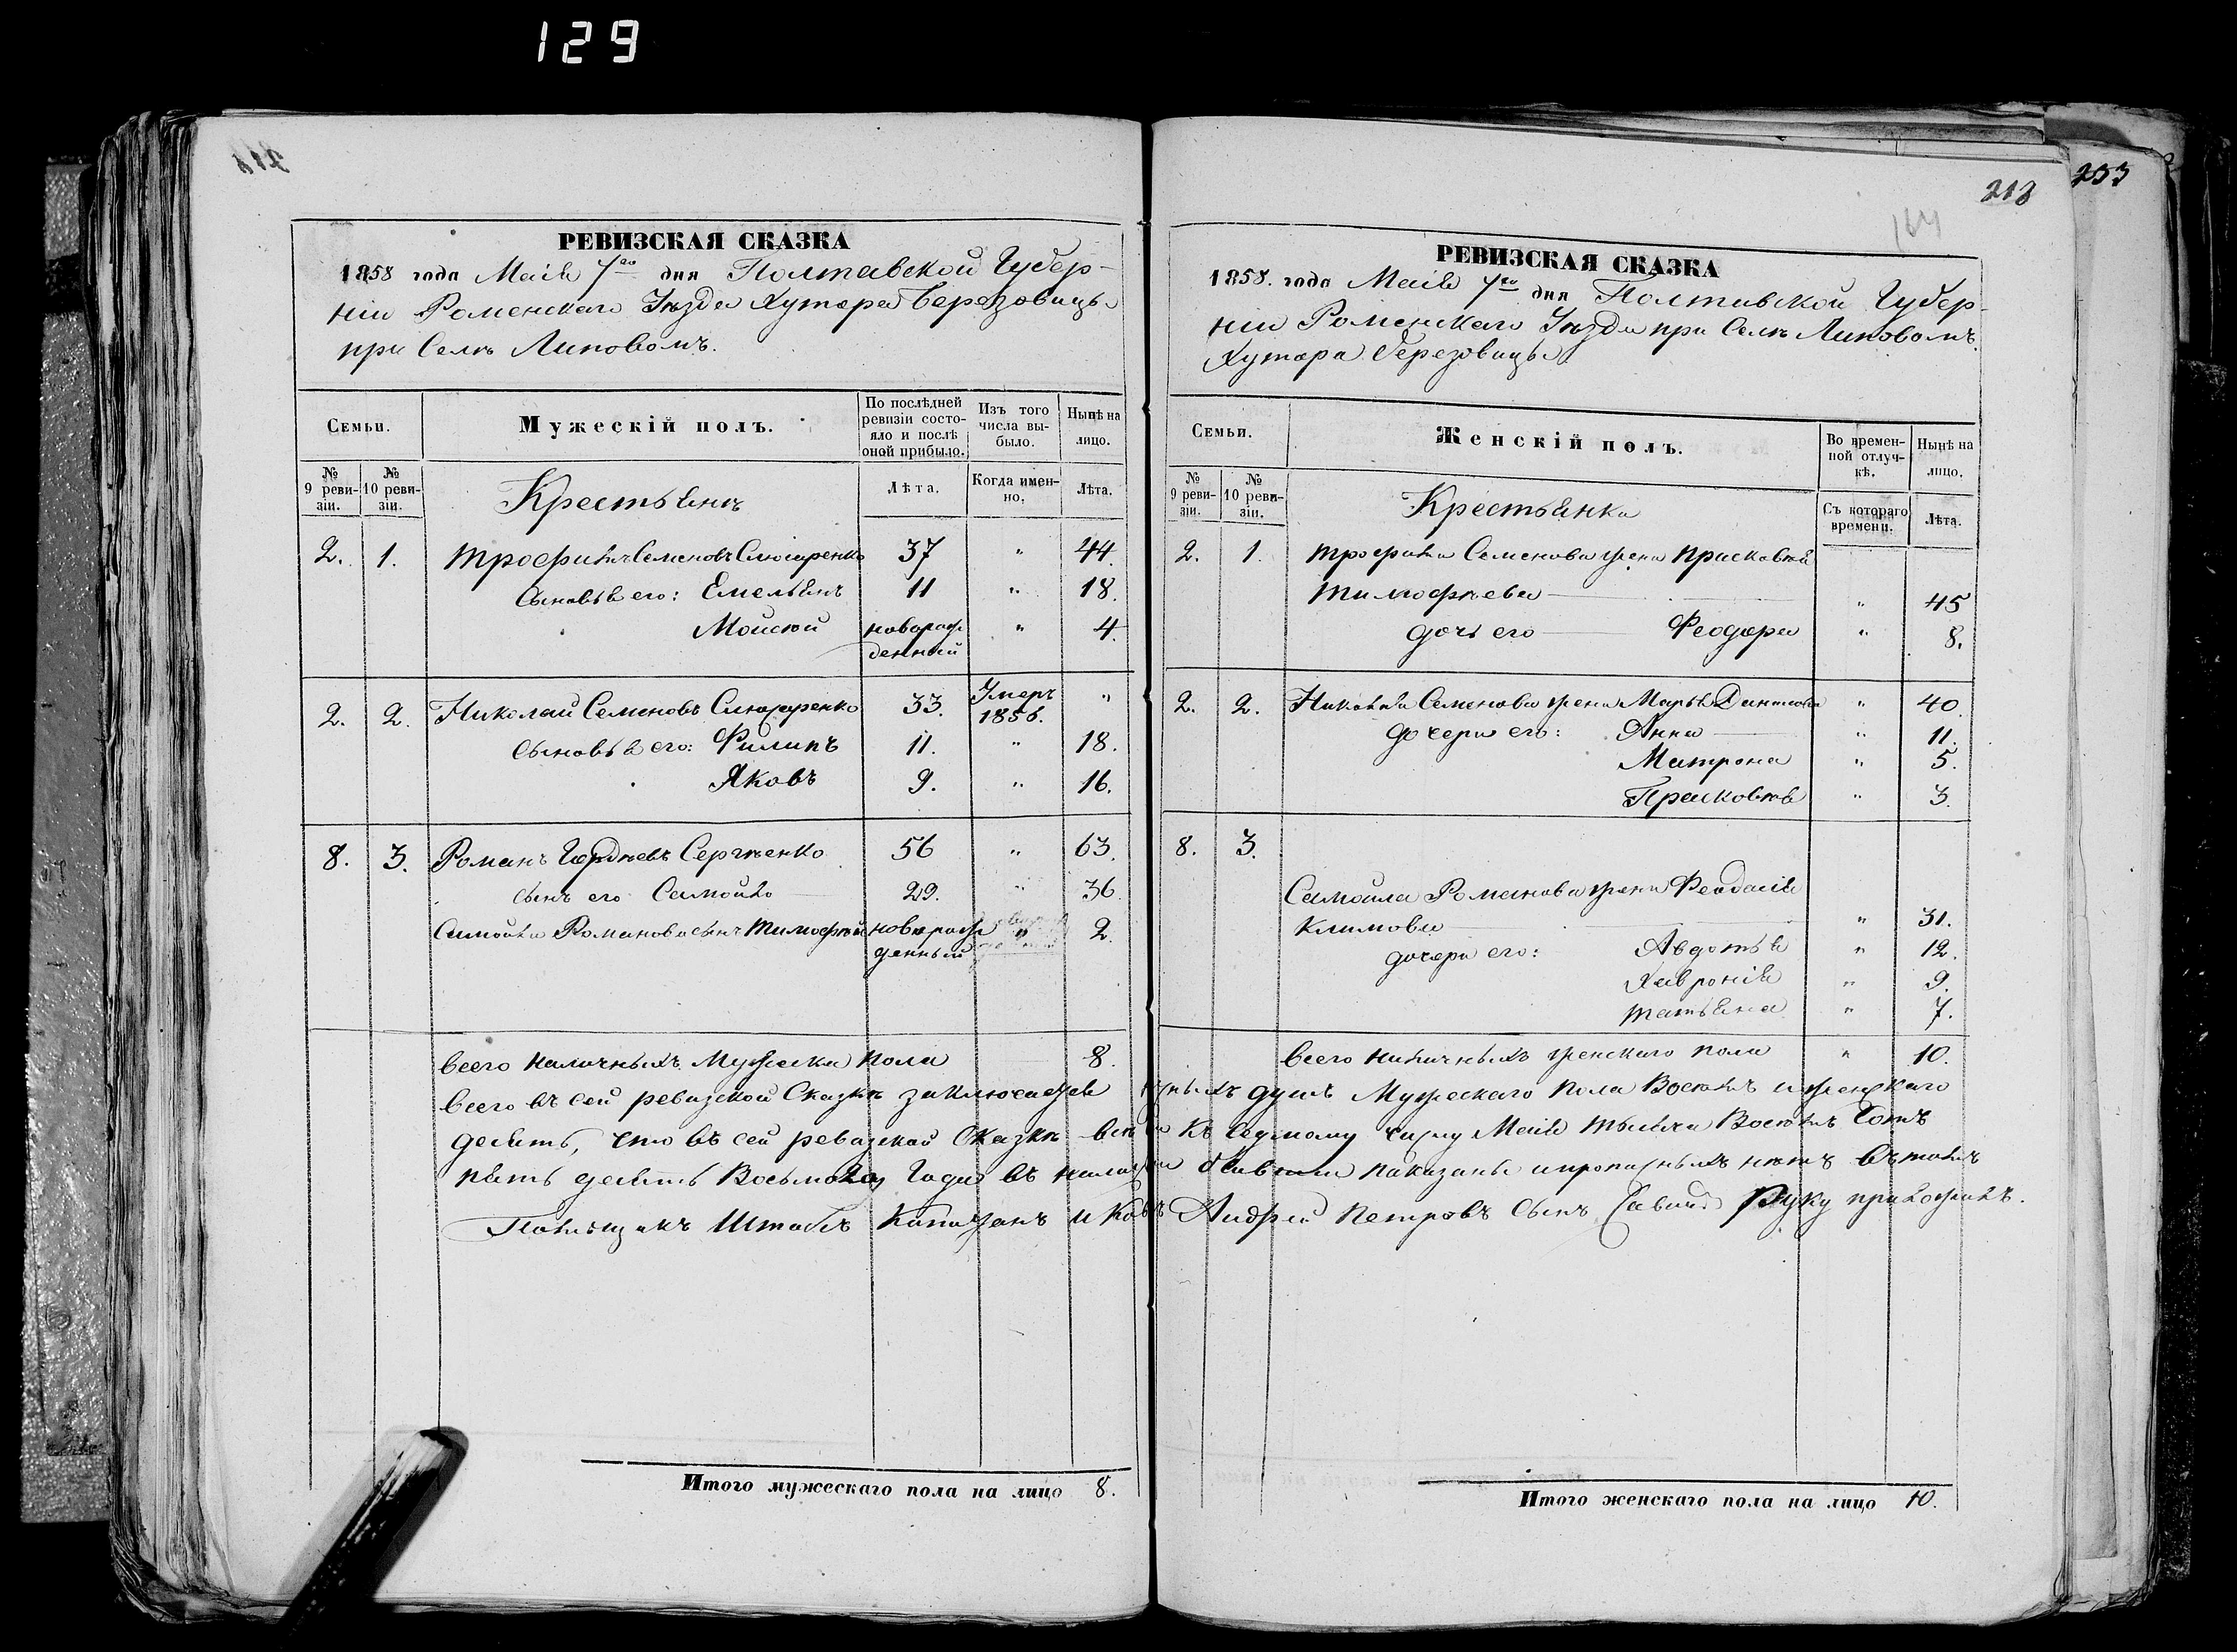 129
РЕВИЗСКАЯ СКАЗКА
1858 года Маія 7го дня Полтавской Губер-
ніи Роменскаго Уѣзда Хутора Березовицы
при Селѣ Липовомъ.
Семьи.
Мужескій полъ.
По послѣдней ревизіи состо-
яло и послѣ оной прибыло.
Изъ того числа вы-
было.
Нынѣ на лицо.
№ 9 реви-
зіи.
№ 10 реви-
зіи.
Крестьянѣ
Лѣта.
Когда имен-
но.
Лѣта.
2. 1. Трофимъ Семеновъ Слюсаренко 37 " 44.
Сыновья его: Емельянъ 11 " 18.
Моисей новорож " 4.
денный
2. 2. Николай Семеновъ Слюсаренко 33. Умеръ 1856. "
сыновья его: Филипъ 11. " 18.
Яковъ 9. " 16.
8. 3. Романъ Гордѣевъ Сергѣенко 56 " 63.
сынъ его Самойло 29. " 36.
Самойла Романова сынъ Тимофѣй новорож " 2.
денный
всего наличныхъ Мужеска пола 8.
всего въ сей ревизской Сказкѣ заключается
десять, что въ сей ревизской Сказкѣ всѣ
пять десять Восьмого Года въ
Помѣщикъ Штабсъ Капитанъ и
Итого мужескаго пола на лицо 8.
253
218
164
РЕВИЗСКАЯ СКАЗКА
1858. года Маія 7го дня Полтавской Губер-
ніи Роменскаго Уѣзда при Селѣ Липовомъ
Хутора Березовицы
Семьи.
Женскій полъ.
Во времен-
ной отлуч-
кѣ.
Нынѣ на лицо.
№ 9 реви-
зіи.
№ 10 реви-
зіи.
Крестьянки
Съ котораго времени.
Лѣта.
2. 1. Трофима Семенова жена Прасковья
Тимофѣева " 45
дочь его Феодора " 8.
2. 2. Николая Семенова жена Марья " 40.
дочери его: Анна " 11.
Матрона " 5.
Прасковья " 3.
8. 3.
Самойла Романова жена Феодосія
Климова " 31.
дочери его: Авдотья " 12.
Хавронія " 9.
Татьяна " 7.
всего наличныхъ женскаго пола " 10.
душъ Мужескаго пола Восемъ и женскаго
къ седмому числу Маія тысяча Восемъ Сотъ
показаны и прописныхъ нѣтъ въ томъ
Андрей Петровъ Сынъ Руку приложилъ.
Итого женскаго пола на лицо 10.